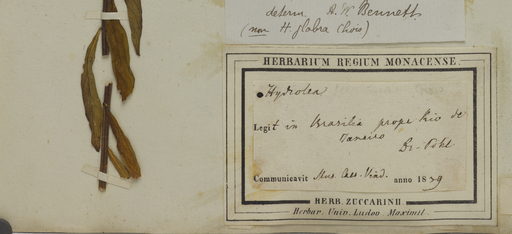 determ A. W. Bennett
(non H. glabra Chois)
HERBARIUM REGIUM MONACENSE.
Hydrolea
Legit in Brasilia prope Rio de
Janeiro
Dr. Pohl
Communicavit Mus. Caes. Vind. anno 1839
HERB. ZUCCARINII.
Herbar. Univ. Ludov. Maximil.